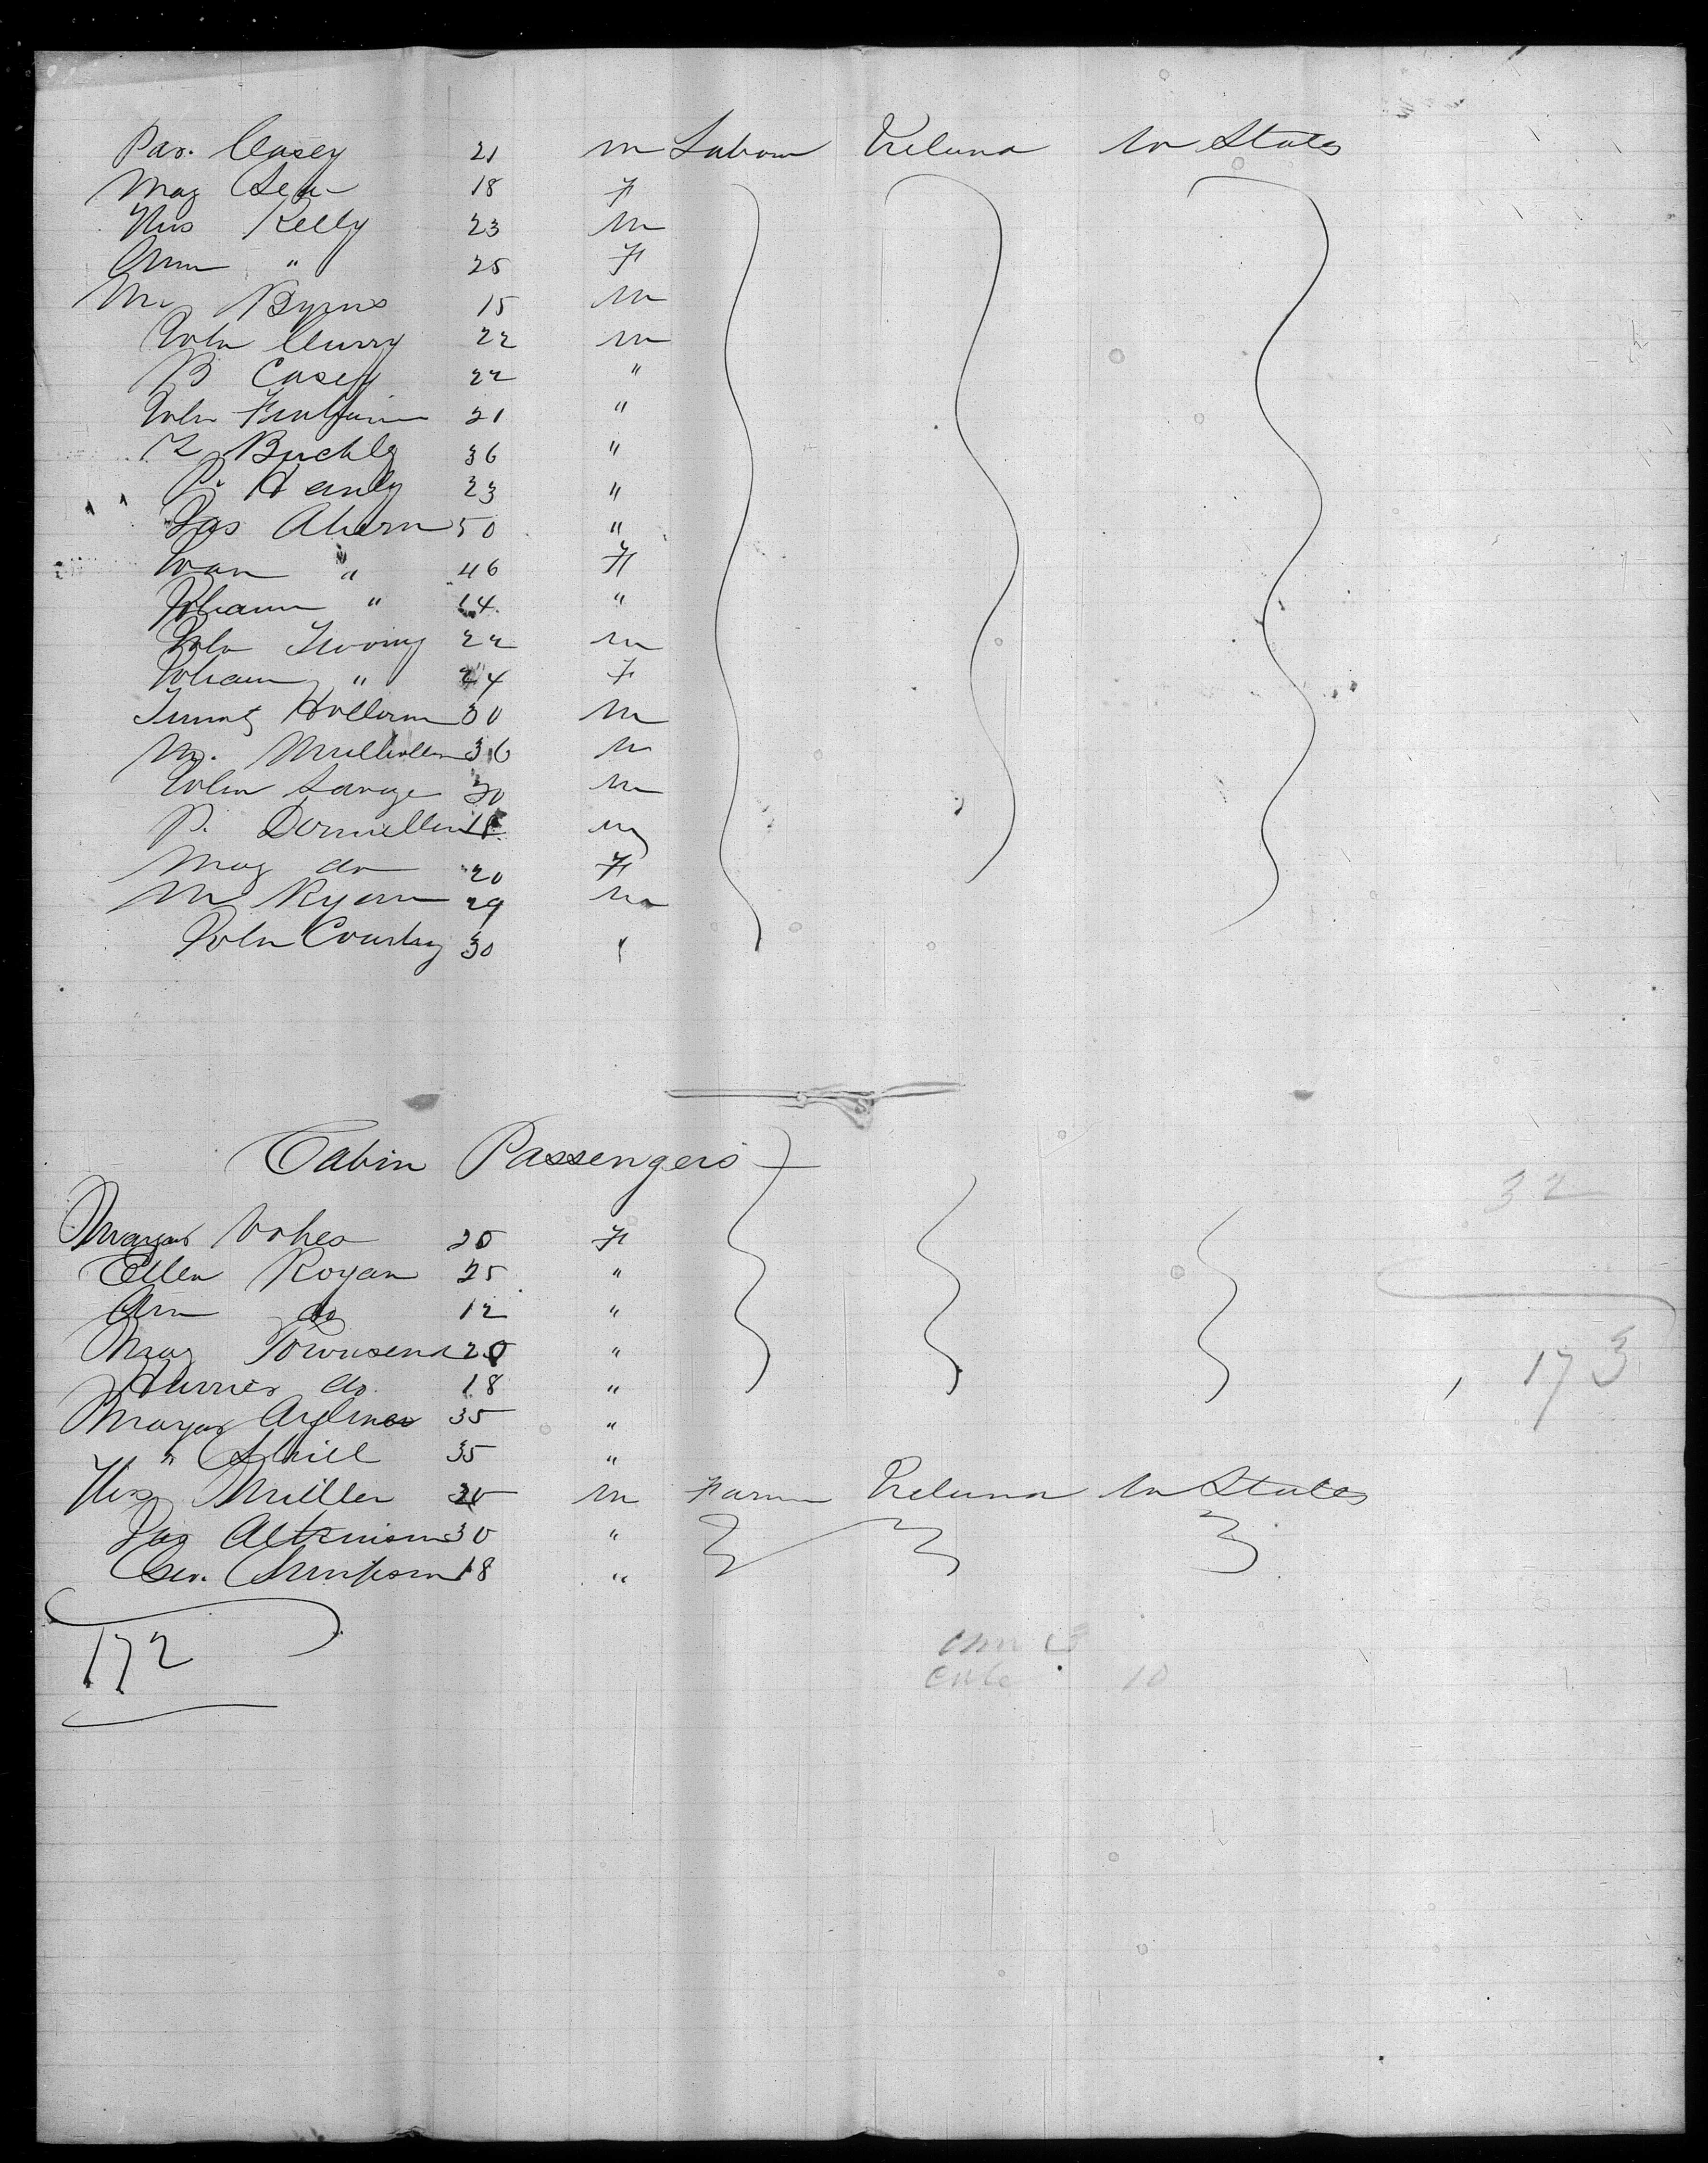 Pat. Casey 21 m Labour Ireland Un States
Mag Lea 18 F
Kelly 23 m
Ann " 25 F
M. Byrns 15 m
John Curry 22 m
B Casey 22 "
John 21 "
Buckly 36 "
P. Hanly 23 "
Jas Ahern 50 "
Joan " 46 F
Johann " 14 "
John Twomy 22 m
Johann " 24 F
Timoty Holloran 30 m
M. Mulhollen 36 m
John Savage 30 m
P. Donnellen 18 m
Mag do 20 F
M Ryan 29 m
John Courtny 30 "
Cabin Passengers
Margat Vokes 20 F
Ellen Rogan 25 "
Ann do 12 "
Mag Townsend 20 "
Harriet do 18 "
Margat 35 "
" Shiel 35 "
Miller m Farm Ireland Un States
Jas Atkinson 30 "
Geo. Simpson 18 "
172
32
173
10